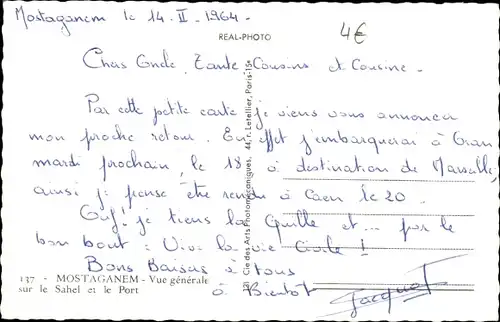 Mostaganem le 14. II - 1964 -
4€
REAL-PHOTO
Chers Oncle, Tante, Cousins et Cousine -
Par cette petite carte je viens vous annoncer
mon proche retour. En effet j'embarquerai à Oran
mardi prochain, le 18 à destination de Marseille
ainsi je pense être rendu à Caen le 20 -
Ouf! je tiens la Quille et... par le
bon bout : Vive la vie Civile !
Bons Baisers à tous
à Bientôt
Jacques
137 - MOSTAGANEM - Vue générale
sur le Sahel et le Port
Cie des Arts Photomécaniques, 44, r. Letellier, Paris-15e